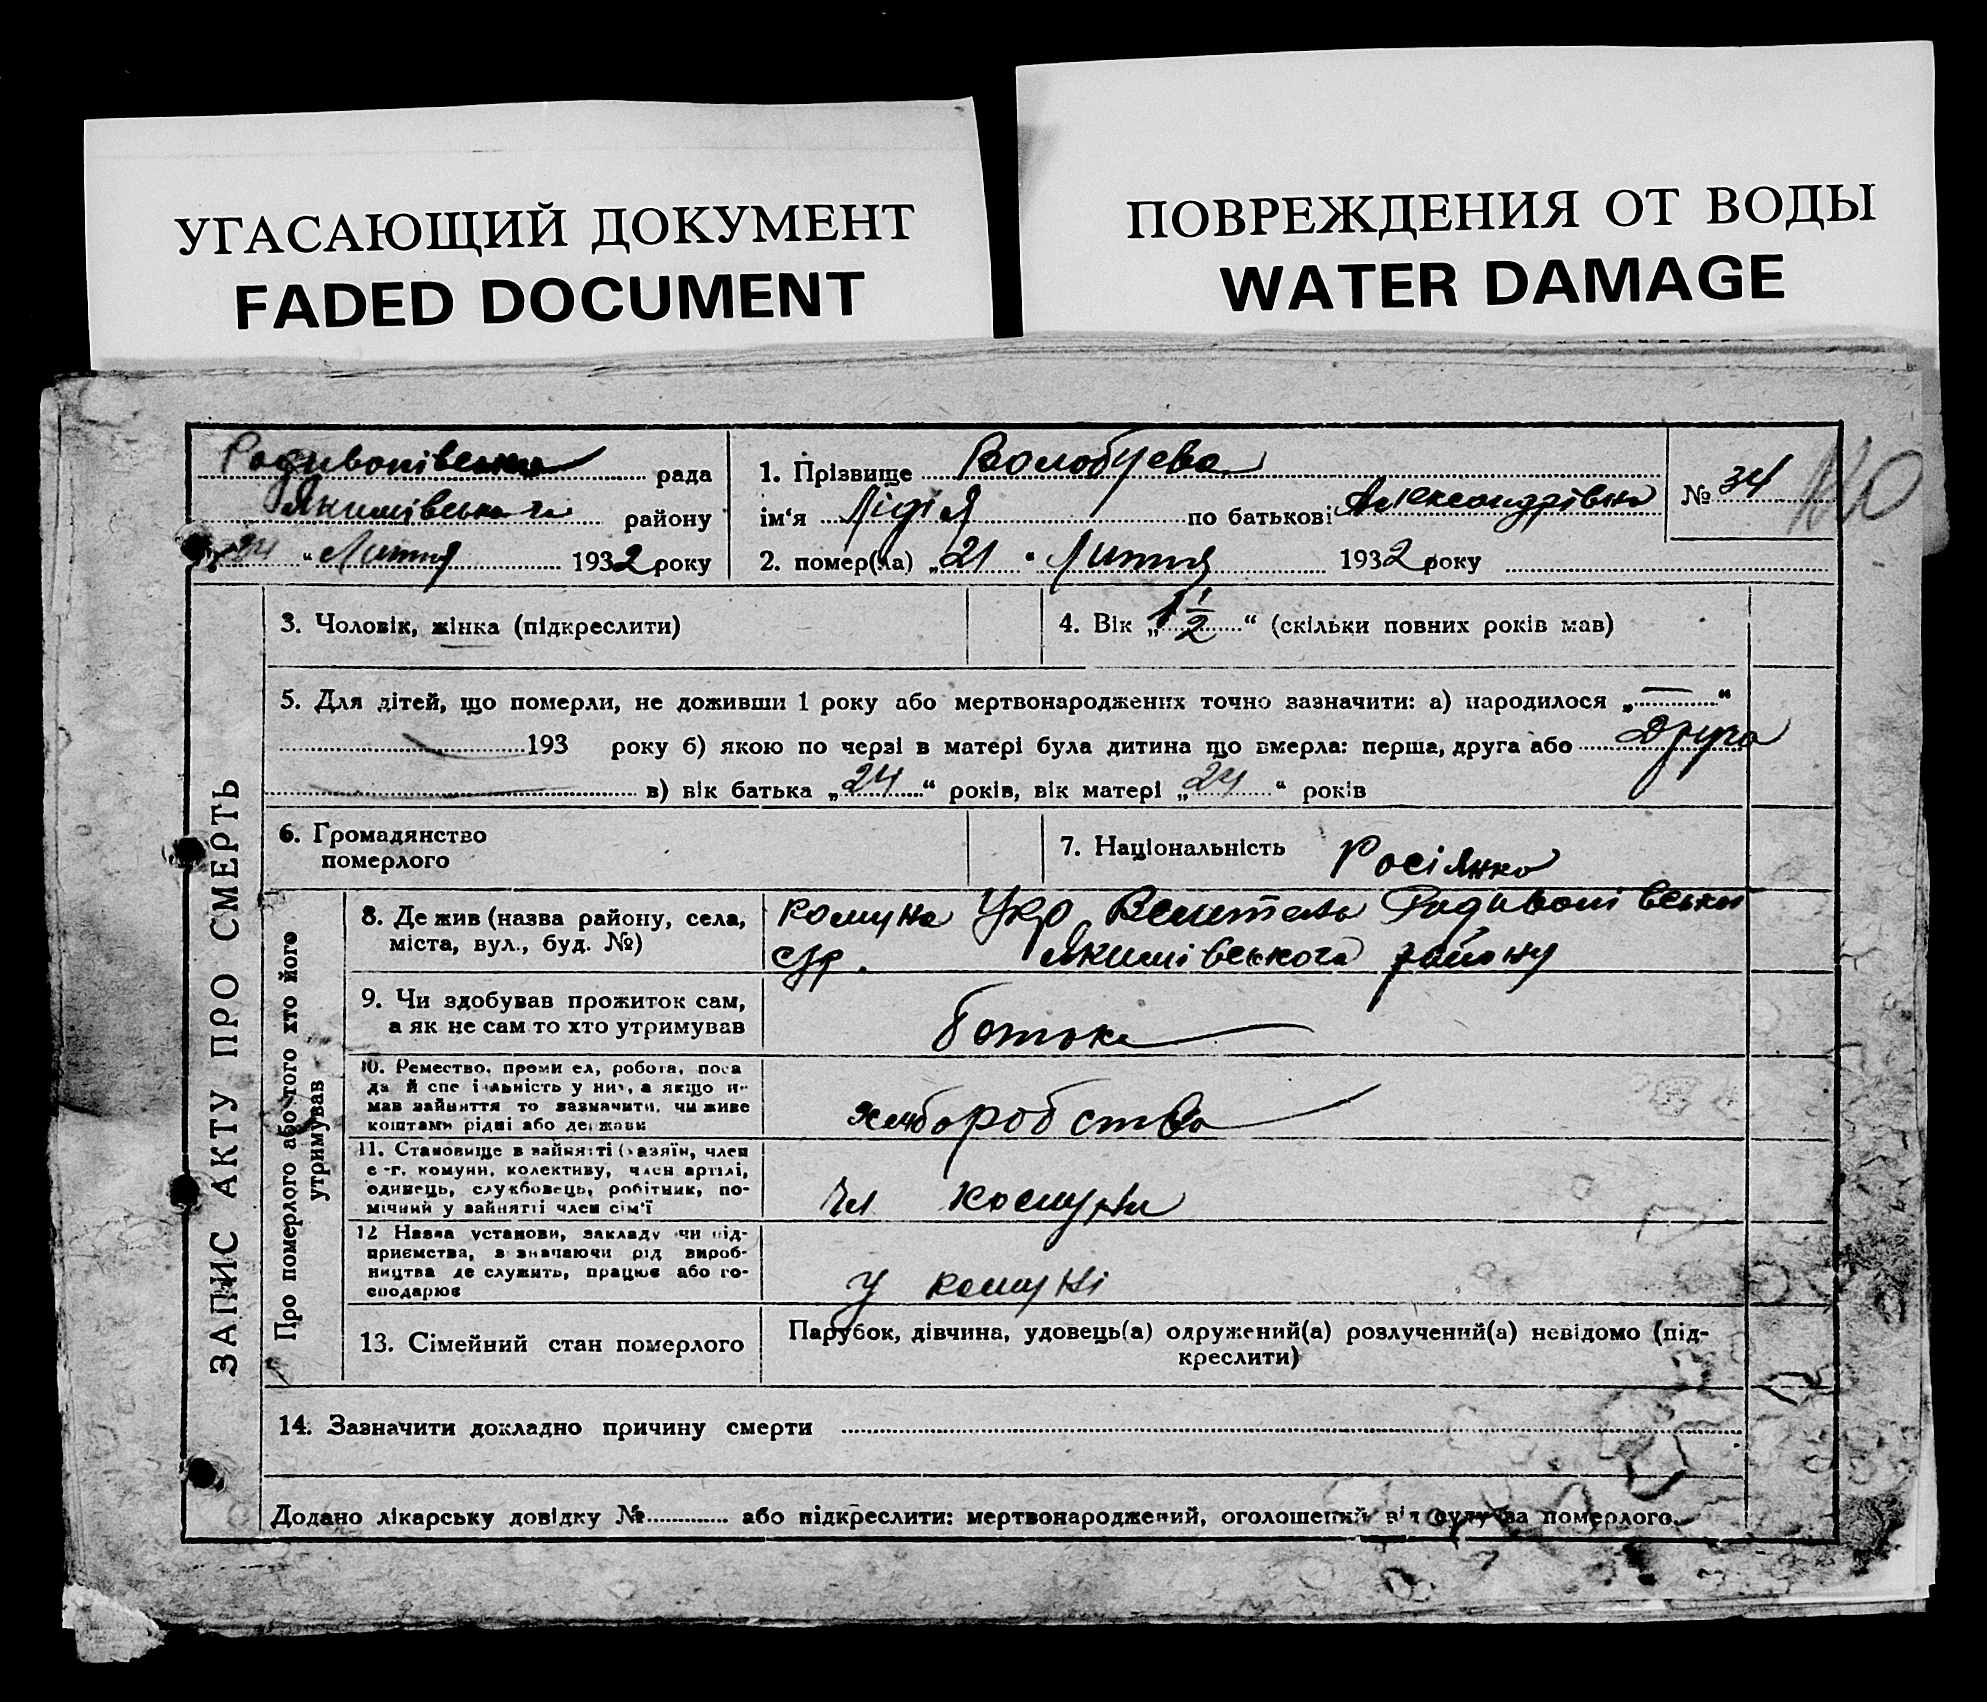 УГАСАЮЩИЙ ДОКУМЕНТ
FADED DOCUMENT
ПОВРЕЖДЕНИЯ ОТ ВОДЫ
WATER DAMAGE
Радивонівська рада
Якимівського району
24 " Липня 1932 року
1. Прізвище Волобуева
ім'я Лідія по батькові Александрівна
2. помер(ла) „21 " Липня 1932 року
№ 34
ЗАПИС АКТУ ПРО СМЕРТЬ
3. Чоловік, жінка (підкреслити)
4. Вік „1 1/2" (скільки повних років мав)
5. Для дітей, що померли, не доживши 1 року або мертвонароджених точно зазначити: а) народилося „—"
193 року б) якою по черзі в матері була дитина що вмерла: перша, друга або Друга
в) вік батька „24" років, вік матері „24" років
6. Громадянство
померлого
7. Національність Росіянка
Про померлого або того хто його
утримував
8. Де жив (назва району, села,
міста, вул., буд. №)
комуна Укр. Радивонівськой
с/р. Якимівського району
9. Чи здобував прожиток сам,
а як не сам то хто утримував
батько
10. Ремество, промисел, робота, поса
да й спеціальність у них, а якщо не
мав зайняття то зазначити, чи живе
коштами рідні або держави
хліборобство
11. Становище в зайнятті (хазяїн, член
с-г. комуни, колективу, член артілі,
одинець, службовець, робітник, по-
мічний у зайнятті член сім'ї
Чл комуни
12 Назва установи, закладу чи під-
приємства, зазначаючи рід вироб-
ництва де служить, працює або го-
сподарює
У комуні
13. Сімейний стан померлого
Парубок, дівчина, удовець(а) одружений(а) розлучений(а) невідомо (під-
креслити)
14. Зазначити докладно причину смерти
Додано лікарську довідку № або підкреслити: мертвонароджений, оголошений від суду за померлого.